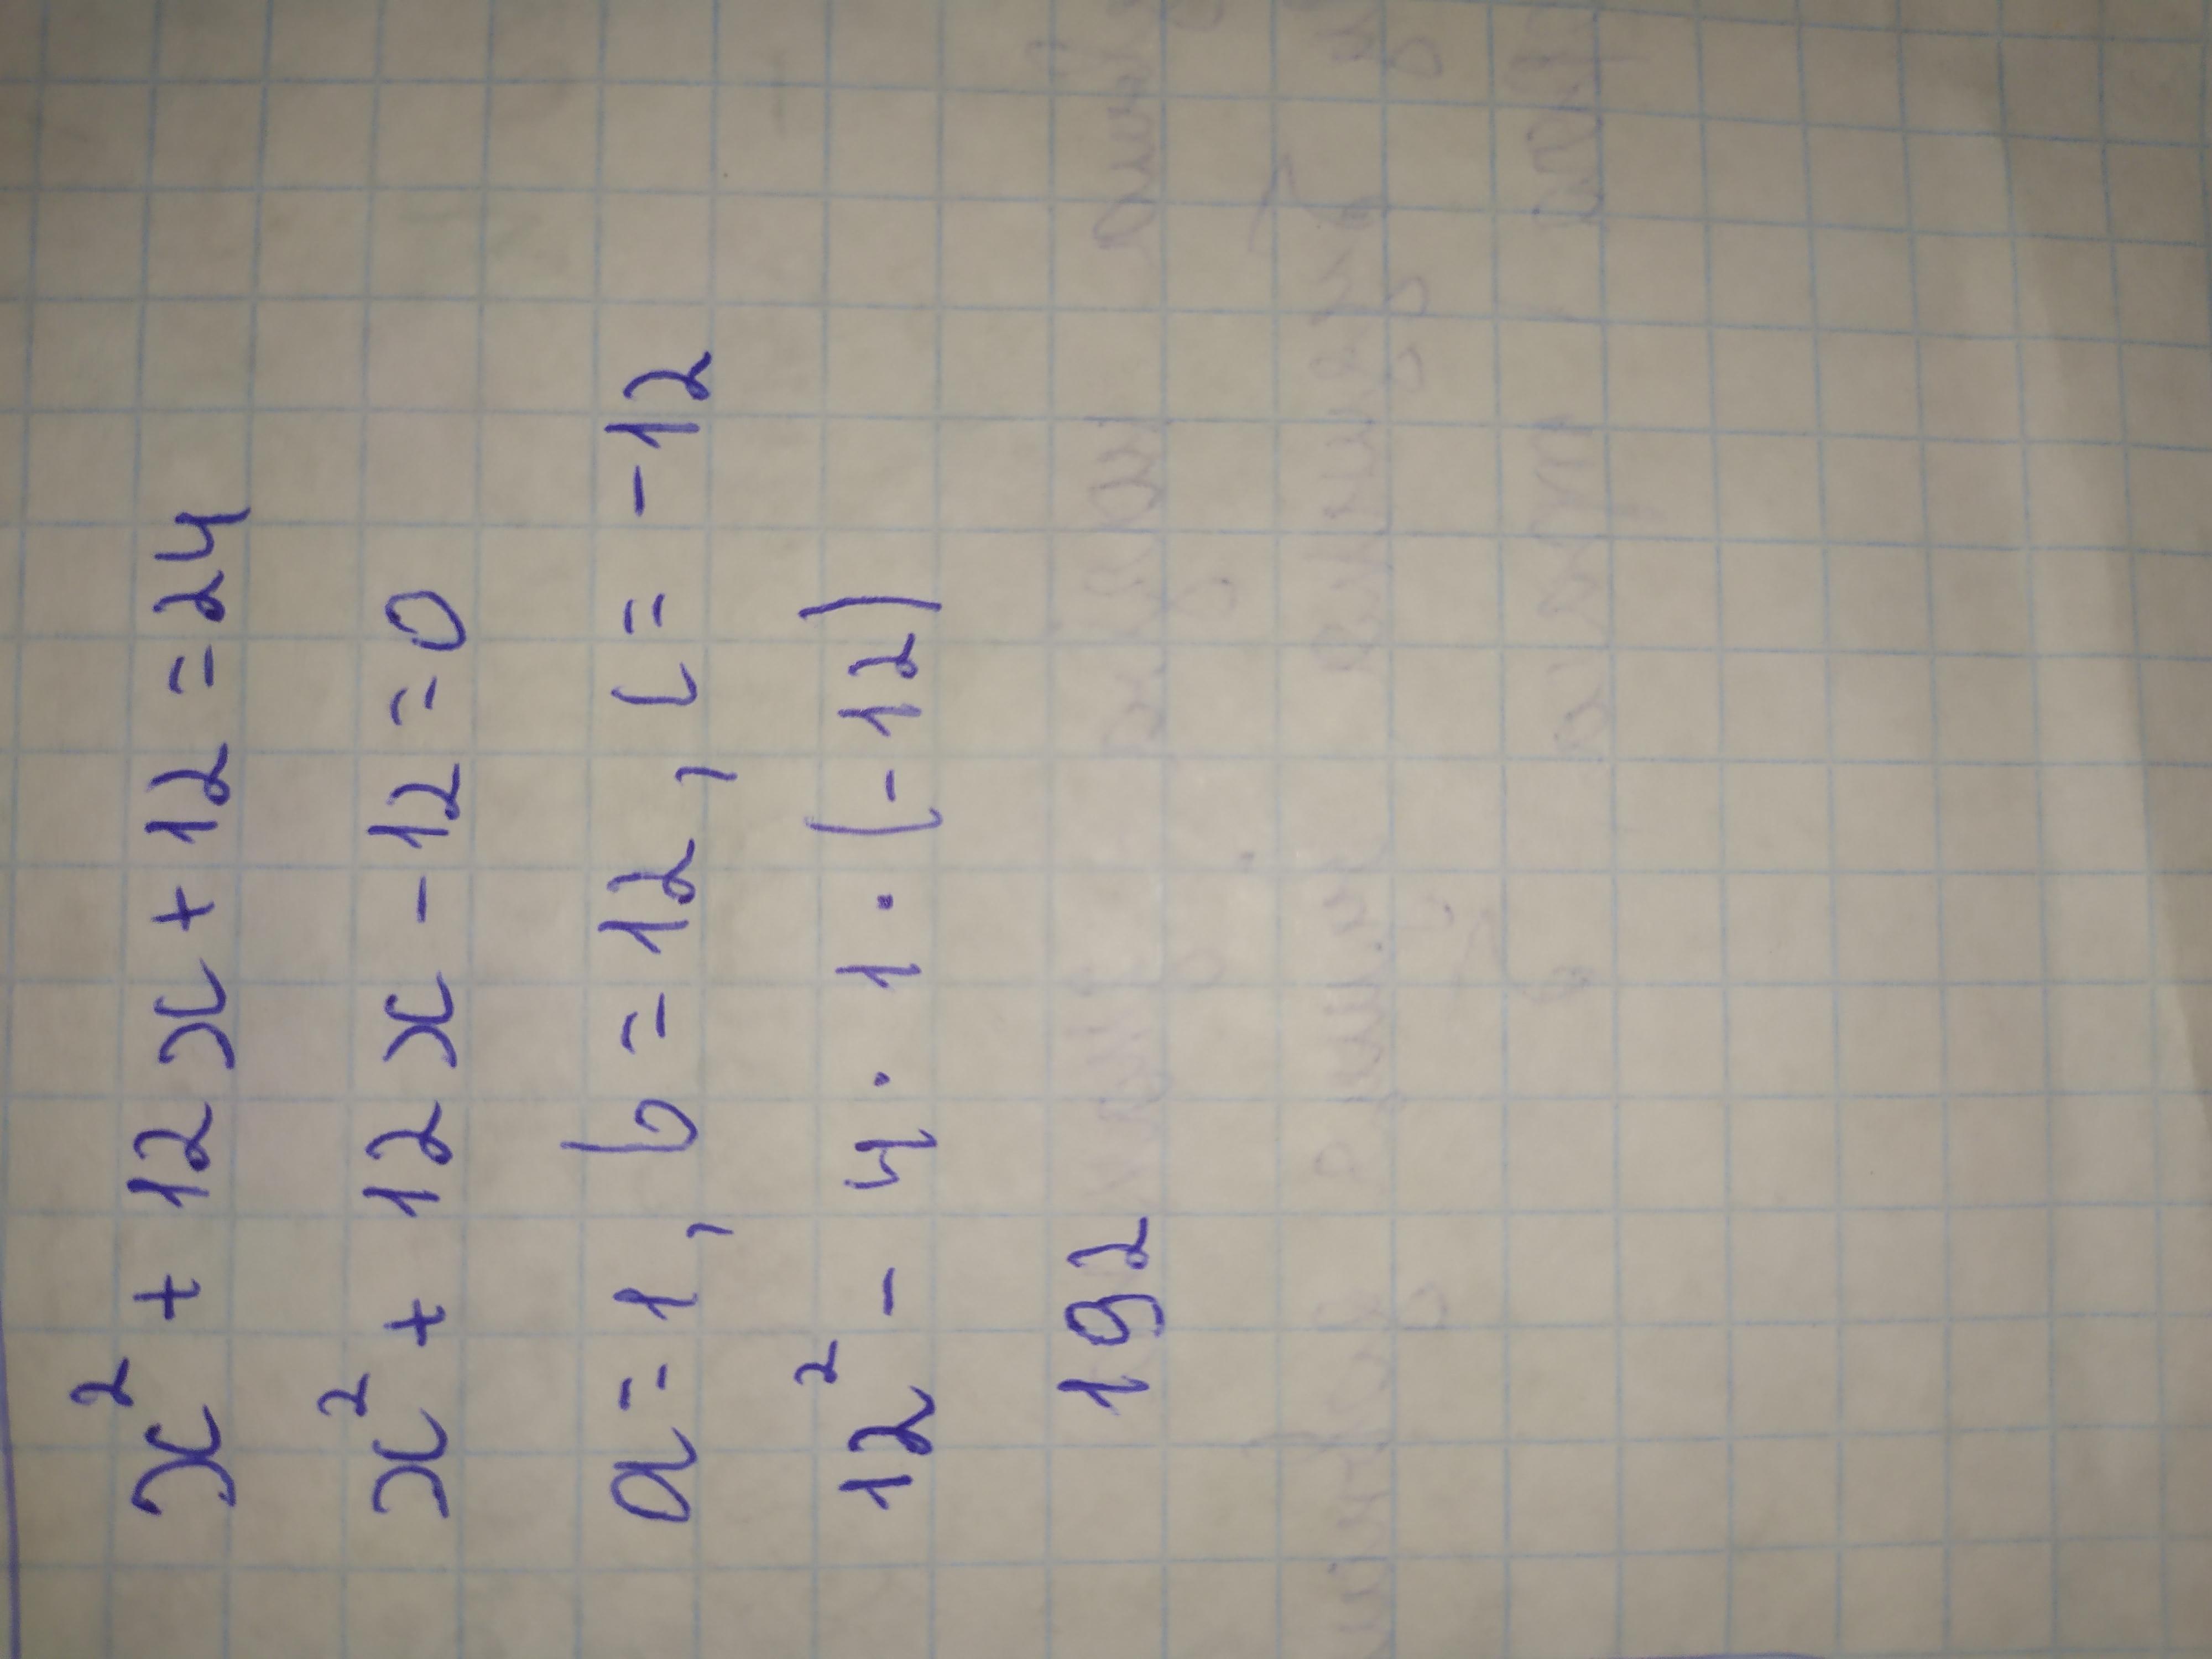 x² + 12x + 12 = 24
x² + 12x - 12 = 0
a = 1, b = 12, c = -12
12² - 4 · 1 · (-12)
192